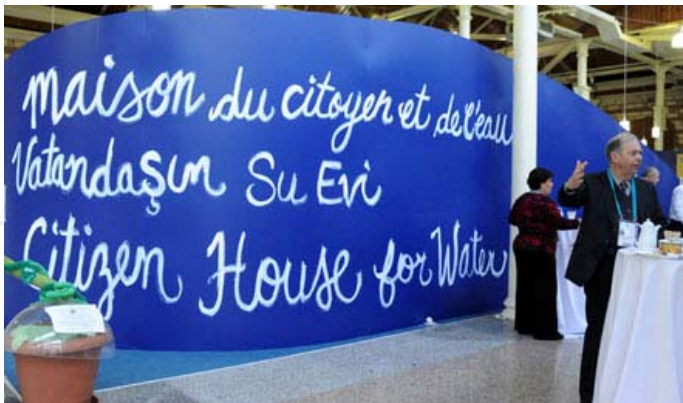 maison du citoyen et de l'eau
Vatandaşın Su Evi
Citizen House for Water